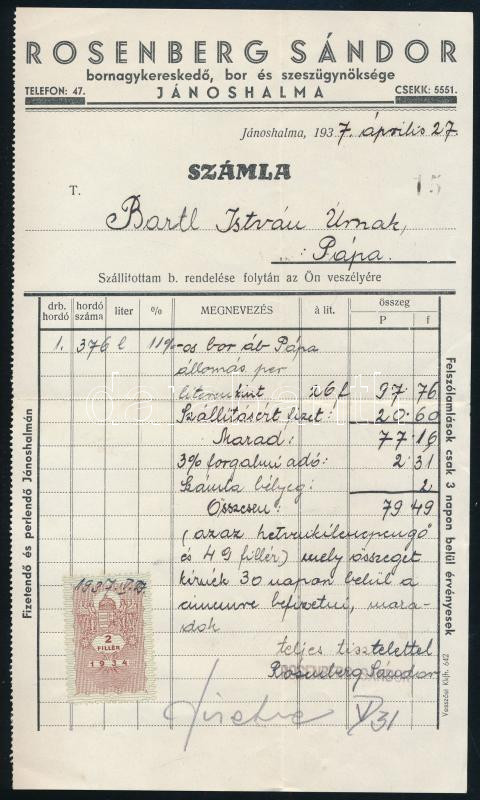 ROSENBERG SÁNDOR
bornagykereskedő, bor és szeszügynöksége
TELEFON: 47. JÁNOSHALMA CSEKK: 5551.
Jánoshalma, 1937 április 27.
SZÁMLA
15
T. Bartl István Úrnak,
Pápa.
Szállitottam b. rendelése folytán az Ön veszélyére
drb. hordó hordó száma liter % MEGNEVEZÉS à lit. összeg P f
1. 376 l 11%-os bor áb Pápa
állomás per
literenkint 26 f 97 76
Szállításért fizet: 20 60
Marad: 77 16
3% forgalmi adó: 2 31
Számla bélyeg: 2
Összesen: 79 49
(azaz hetvenkilencpengő
és 49 fillér) mely összeget
kérnék 30 napon belül a
cimemre befizetni, mara-
dok
teljes tisztelettel
Rosenberg Sándor
ROSENBERG SÁNDOR
1937. IV. 27.
2
FILLÉR
1934
Fizetve V/31
Fizetendő és perlendő Jánoshalmán
Felszólamlások csak 3 napon belül érvényesek